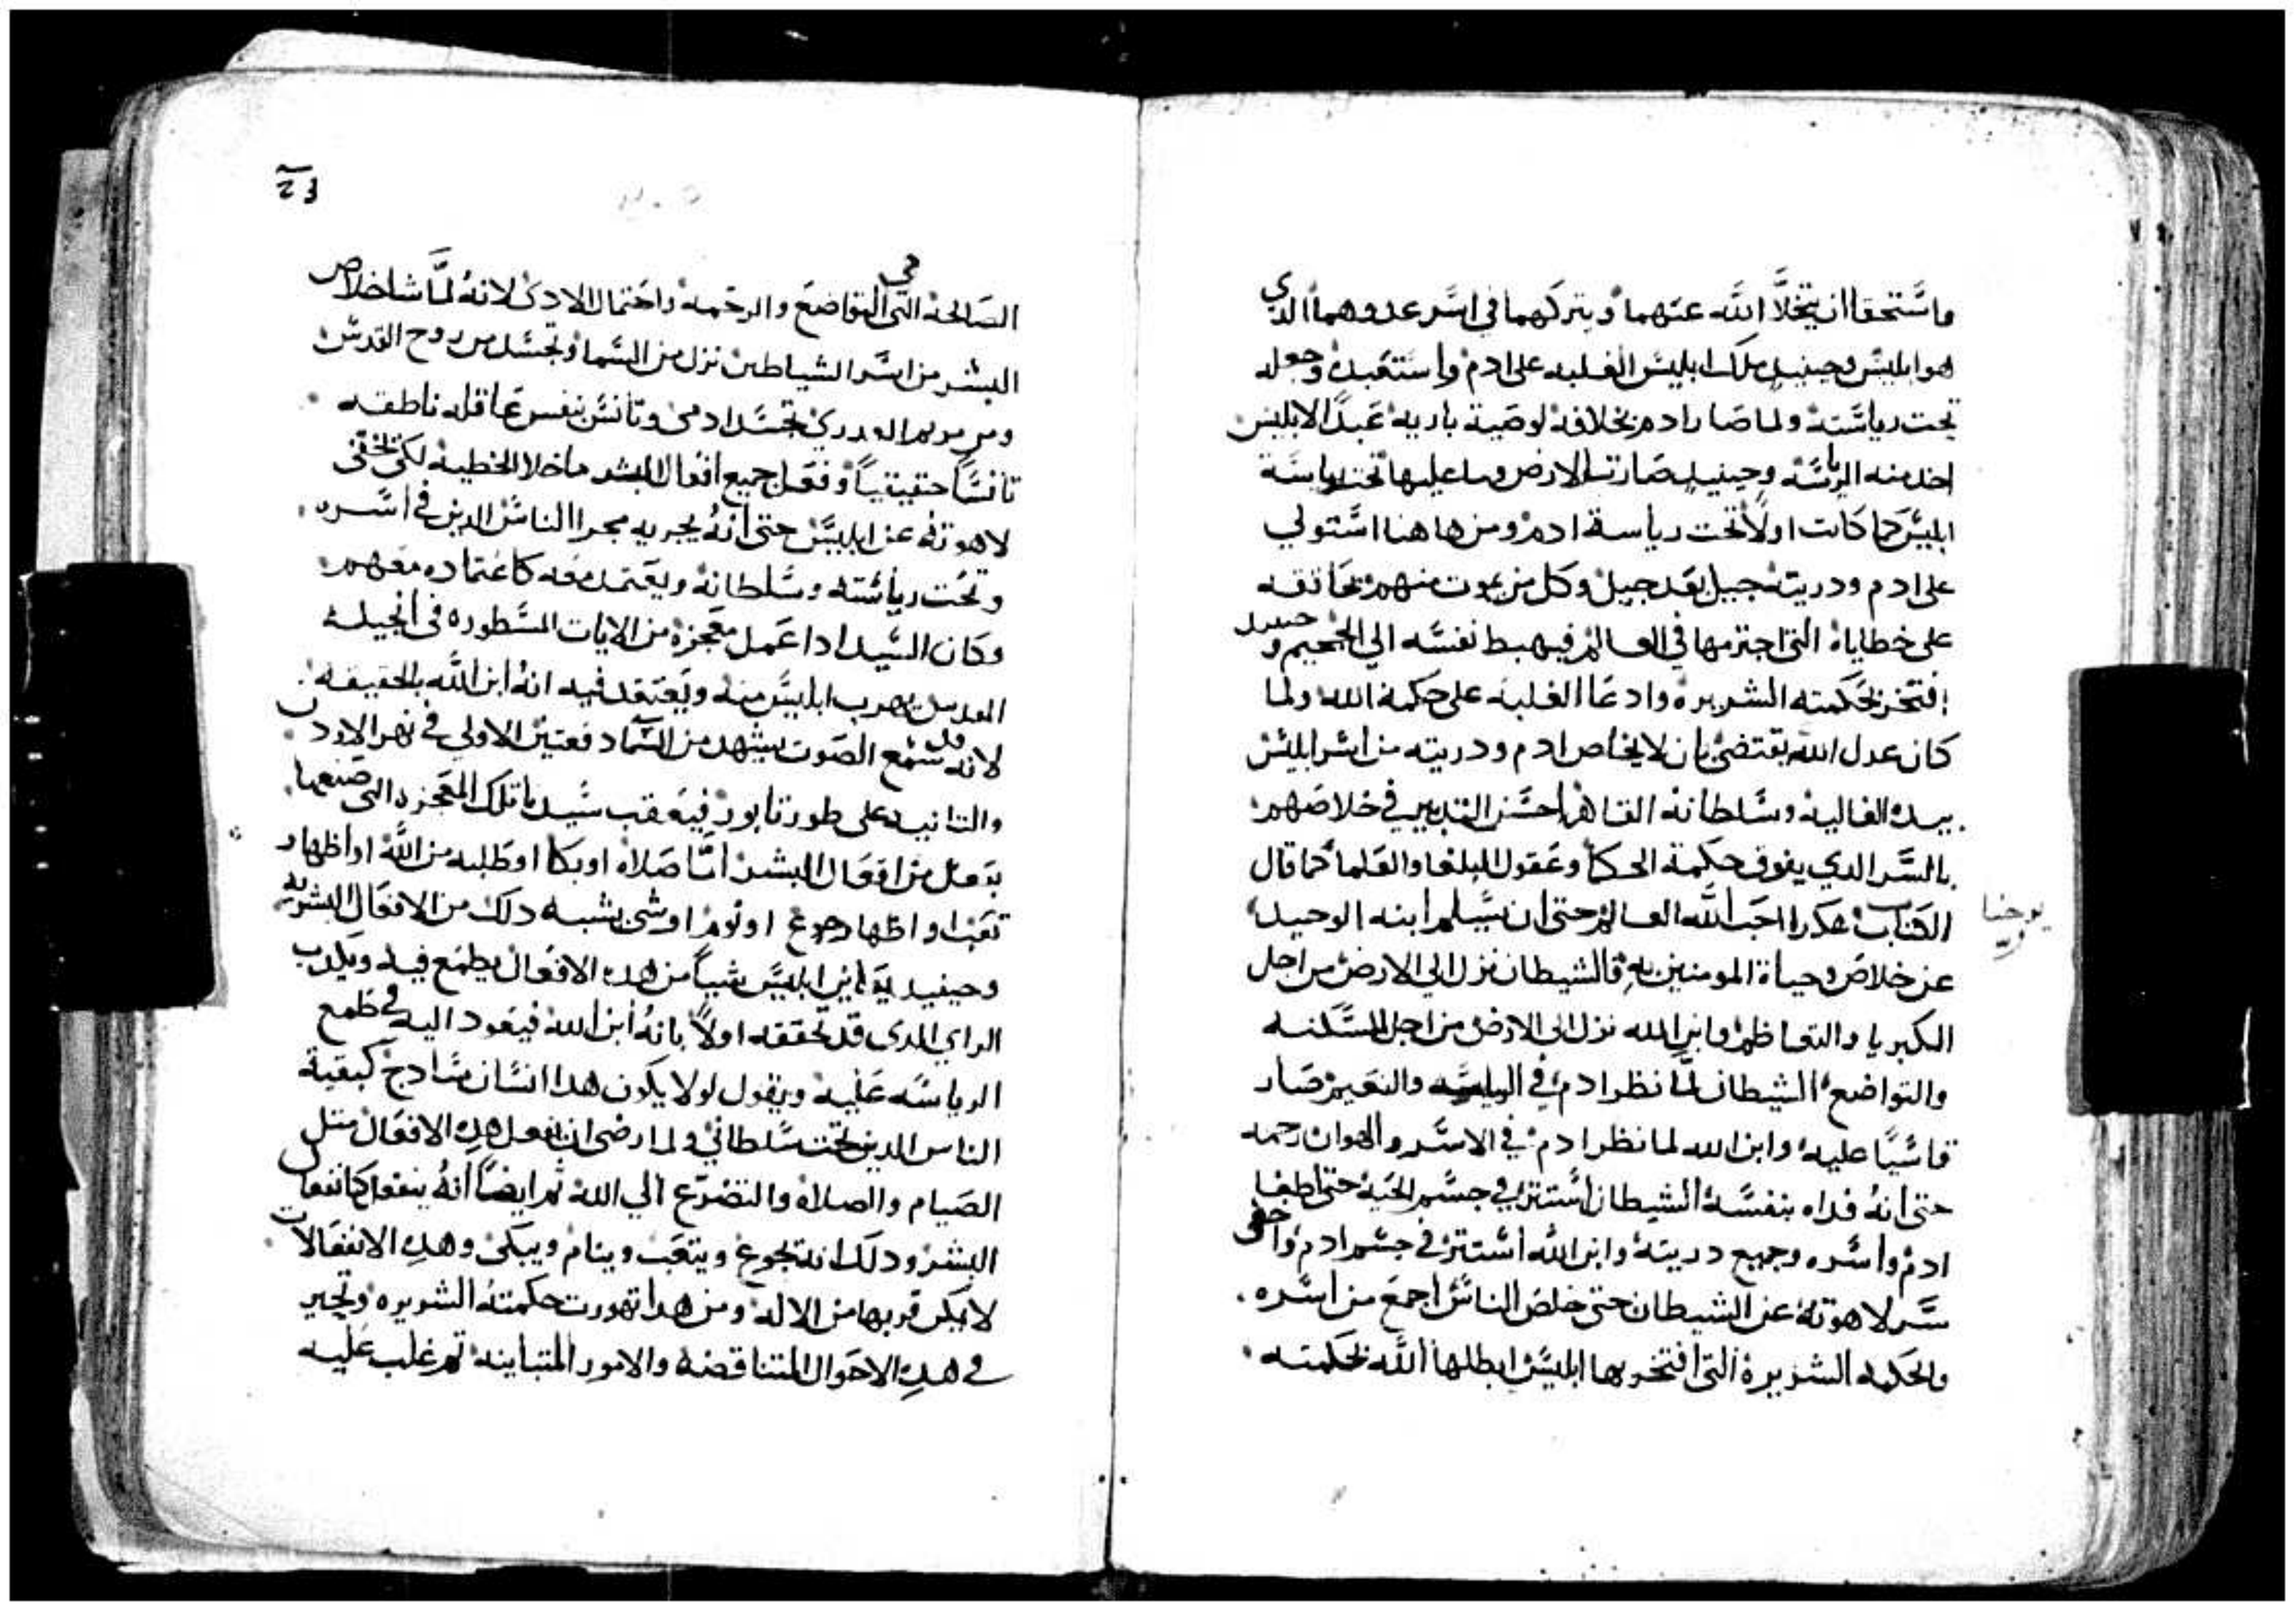 فاستحقا ان يتخلا الله عنهما ويتركهما في اسر عدوهما الدي
هو ابليس وحينيد ملك ابليس الغلبه على ادم واستعبده وجعله
تحت رياسته ولما صار ادم بخلافه لوصية باريه عبدًا لابليس
اخد منه الرياسه وحينيد صارت الارض وما عليها تحت رياسة
ابليس كما كانت اولًا تحت رياسة ادم ومن هاهنا استولي
على ادم ودريته جيل بعد جيل وكل من يموت منهم يحاققه
على خطاياه التي اجترمها في العالم فيهبط نفسه الي الجحيم وحينيد
افتخر بحكمته الشريره وادعا الغلبه على حكمة الله ولما
كان عدل الله يقتضي بان لا يخلص ادم ودريته من اسر ابليس
بيده العاليه وسلطانه القاهر احسن التدبير في خلاصهم
بالسر الدي يفوق حكمة الحكما وعقول البلغا والعلما كما قال
الكتاب هكدا احب الله العالم حتى ان يسلم ابنه الوحيد
يوحنا
عن خلاص وحياة المومنين به فالشيطان نزل الي الارض من اجل
الكبريا والتعاظم وابن الله نزل الى الارض من اجل المسكنه
والتواضع الشيطان لما نظر ادم في الرياسه والنعيم صار
قاسيًا عليه وابن الله لما نظر ادم في الاسر والهوان رحمه
حتى انه فداه بنفسه الشيطان استتر في جسم الحيه حتى اطغا
ادم واسره وجميع دريته وابن الله استتر في جسم ادم واخفى
سر لاهوته عن الشيطان حتى خلص الناس اجمع من اسره
والحكمه الشريره التي افتخر بها ابليس ابطلها الله بحكمته
٢٤
الصالحه التي هي التواضع والرحمه واحتمال الادى لانه لما شا خلاص
البشر من اسر الشياطين نزل من السما وتجسد من روح القدس
ومن مريم العدري بجسد ادمي وتانس بنفس عاقله ناطقه
تانسًا حقيقيًا وفعل جميع افعال البشر ماخلا الخطيه لكي يخفى
لاهوته عن ابليس حتى انه يجريه مجرا الناس الدين في اسره
وتحت رياسته وسلطانه ويعتمد معه كاعتماده معهم
وكان السيد ادا عمل معجزه من الايات المسطوره في انجيله
المقدس يهرب ابليس منه ويعتقد فيه انه ابن الله بالحقيقه
لانه قد سمع الصوت يشهد من السما دفعتين الاولي في نهر الاردن
والتانيه على طور تابور فيعقب سيدنا تلك المعجزه التي صنعها
بفعل من افعال البشر اما صلاه او بكا او طلبه من الله او اظهار
تعب او اظهار جوع او نوم او شي يشبه دلك من الافعال البشريه
وحينيد يعاين ابليس شيًا من هده الافعال يطمع فيه ويكدب
الراي الدي قد تحققه اولًا بانه ابن الله فيعود اليه في طمع
الرياسه عليه ويقول لولا يكون هدا انسان سادج كبقية
الناس الدين تحت سلطاني ولما رضى ان يفعل هده الافعال متل
الصيام والصلاه والتضرع الي الله تم ايضًا انه ينفعل كانفعال
البشر ودلك انه يجوع ويتعب وينام ويبكى وهده الانفعالات
لا يمكن قربها من الاله ومن هدا تهورت حكمته الشريره وتحير
في هده الاحوال المتناقضه والامور المتباينه تم غلب عليه